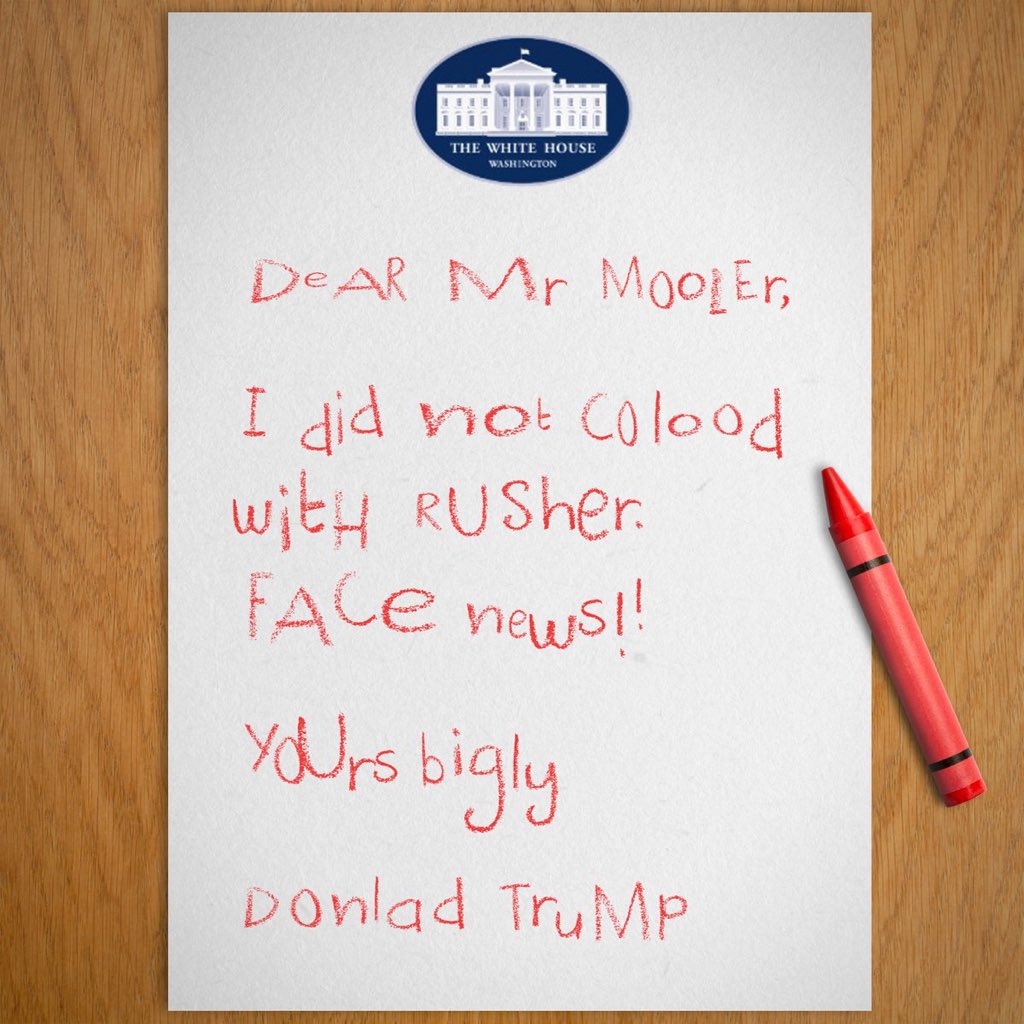 THE WHITE HOUSE
WASHINGTON
DeAR Mr MOOlEr,
I did not COlood
witH RUSher.
FACe news!!
YoUrs bigly
Donlad TruMP